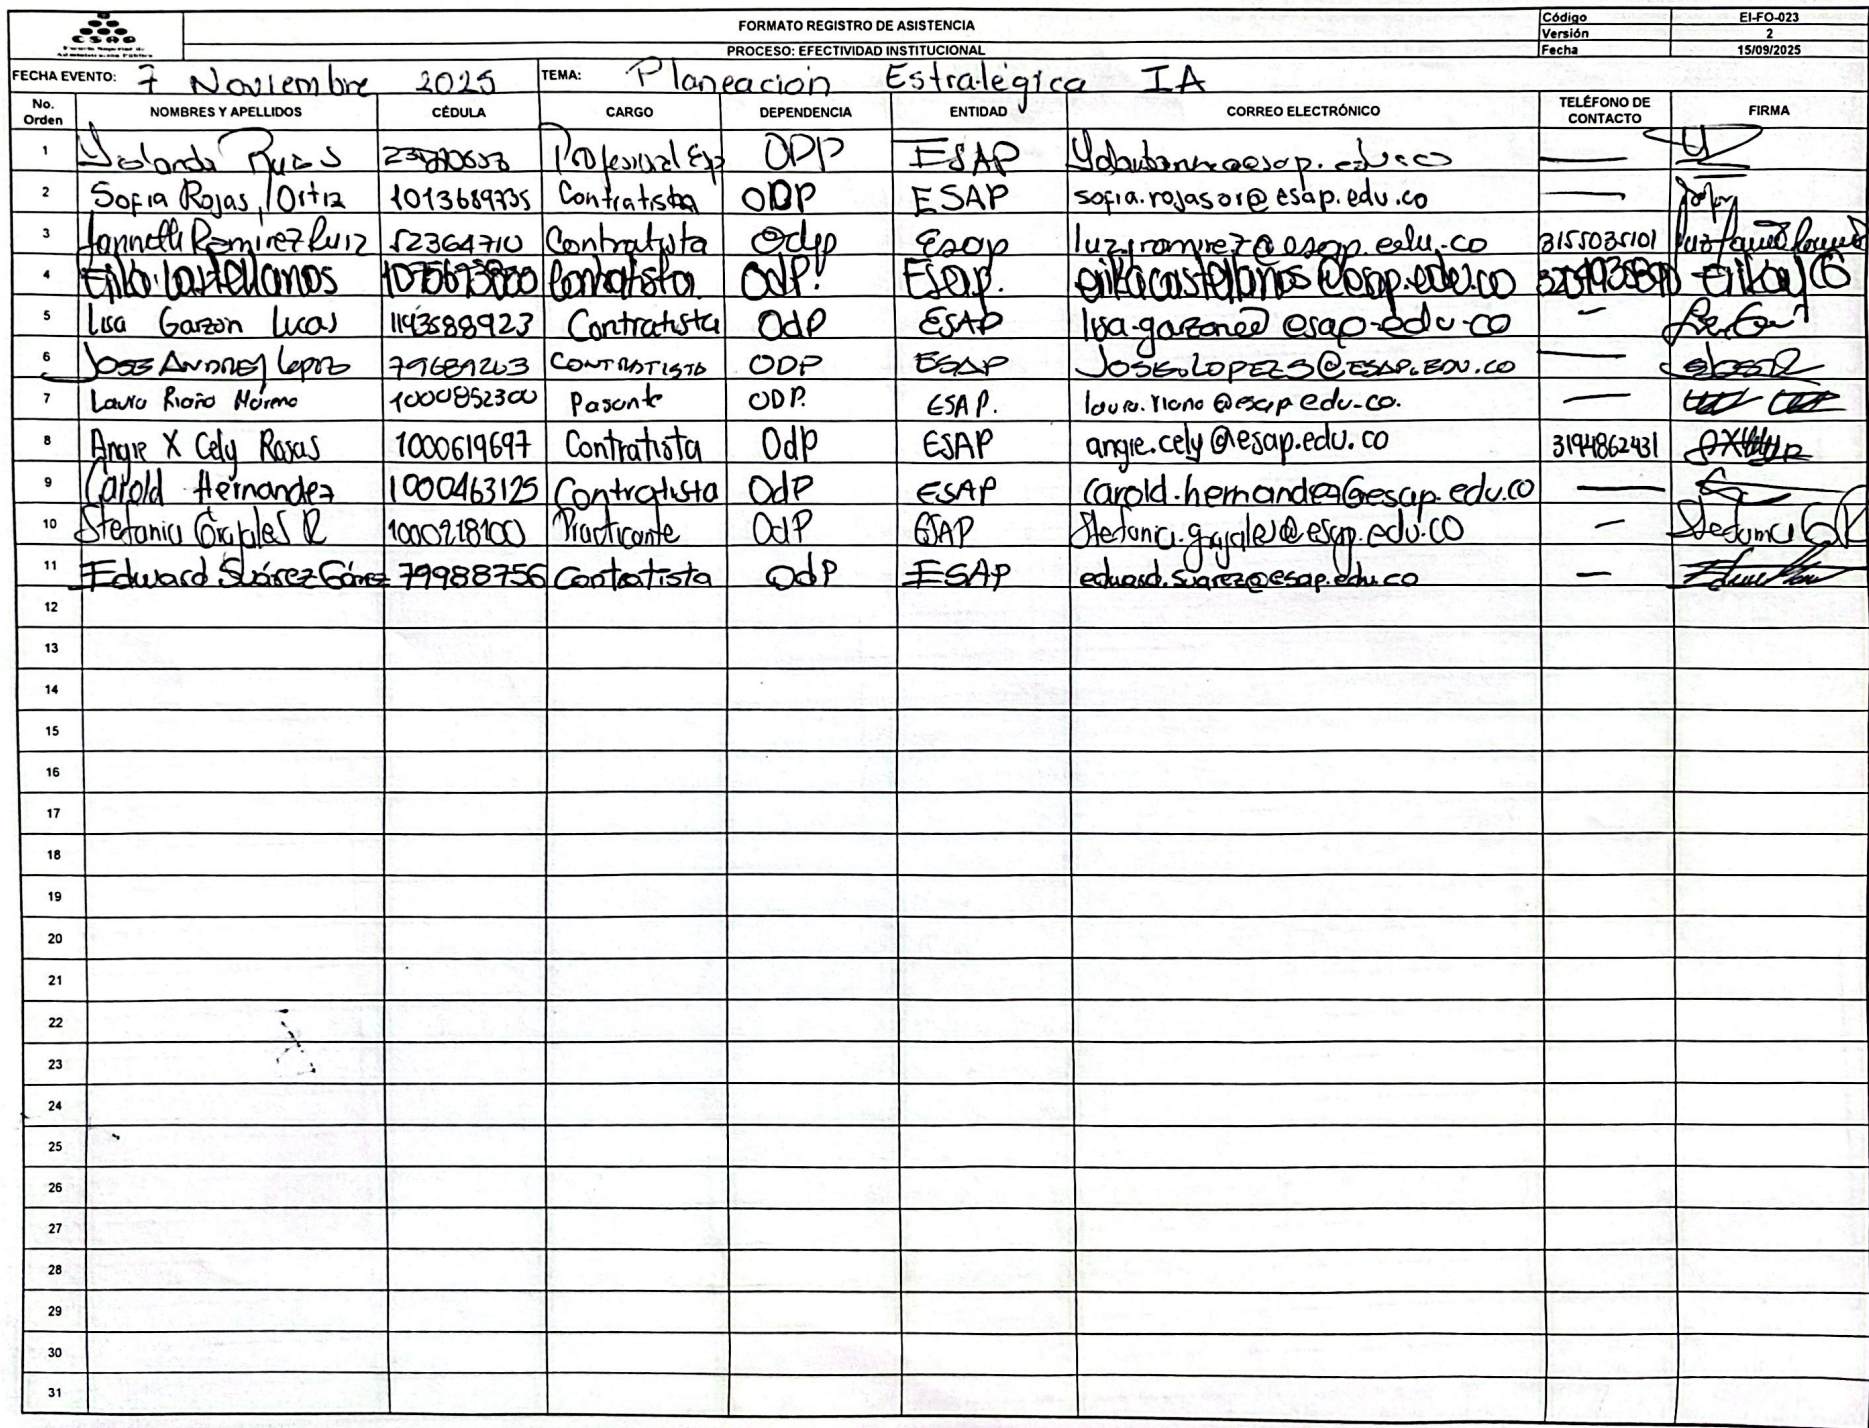 ESAP
Escuela Superior de
Administración Pública
FORMATO REGISTRO DE ASISTENCIA
PROCESO: EFECTIVIDAD INSTITUCIONAL
Código EI-FO-023
Versión 2
Fecha 15/09/2025
FECHA EVENTO: 7 Noviembre 2025 TEMA: Planeación Estratégica IA
No. Orden NOMBRES Y APELLIDOS CÉDULA CARGO DEPENDENCIA ENTIDAD CORREO ELECTRÓNICO TELÉFONO DE CONTACTO FIRMA
1 Yolanda Profesional Esp ODP ESAP —
2 Sofia Rojas Ortiz 1013689735 Contratista ODP ESAP sofia.rojasor@esap.edu.co —
3 Janneth Ramirez Ruiz 52364710 Contratista Odp Esap luz.ramirez@esap.edu.co 3155035101
4 Erika Castellanos Contratista OdP. Esap. erika.castellanos@esap.edu.co
5 Lisa Garzon Lucas 1193588923 Contratista OdP ESAP lisa.garzon@esap.edu.co —
6 Jose Andres Lopez 79689203 CONTRATISTA ODP ESAP JOSE.LOPEZS@ESAP.EDU.CO —
7 Laura Riaño Moreno 1000852300 Pasante ODP. ESAP. laura.riano@esap.edu.co. —
8 Angie X Cely Rosas 1000619697 Contratista OdP ESAP angie.cely@esap.edu.co 3194862431
9 Carold Hernandez 1000463125 Contratista OdP ESAP carold.hernandez@esap.edu.co —
10 Stefania Grajales R 1000218100 Practicante OdP ESAP Stefania.grajales@esap.edu.co —
11 Edward Suárez Gómez 79988756 Contratista OdP ESAP edward.suarez@esap.edu.co —
12
13
14
15
16
17
18
19
20
21
22
23
24
25
26
27
28
29
30
31